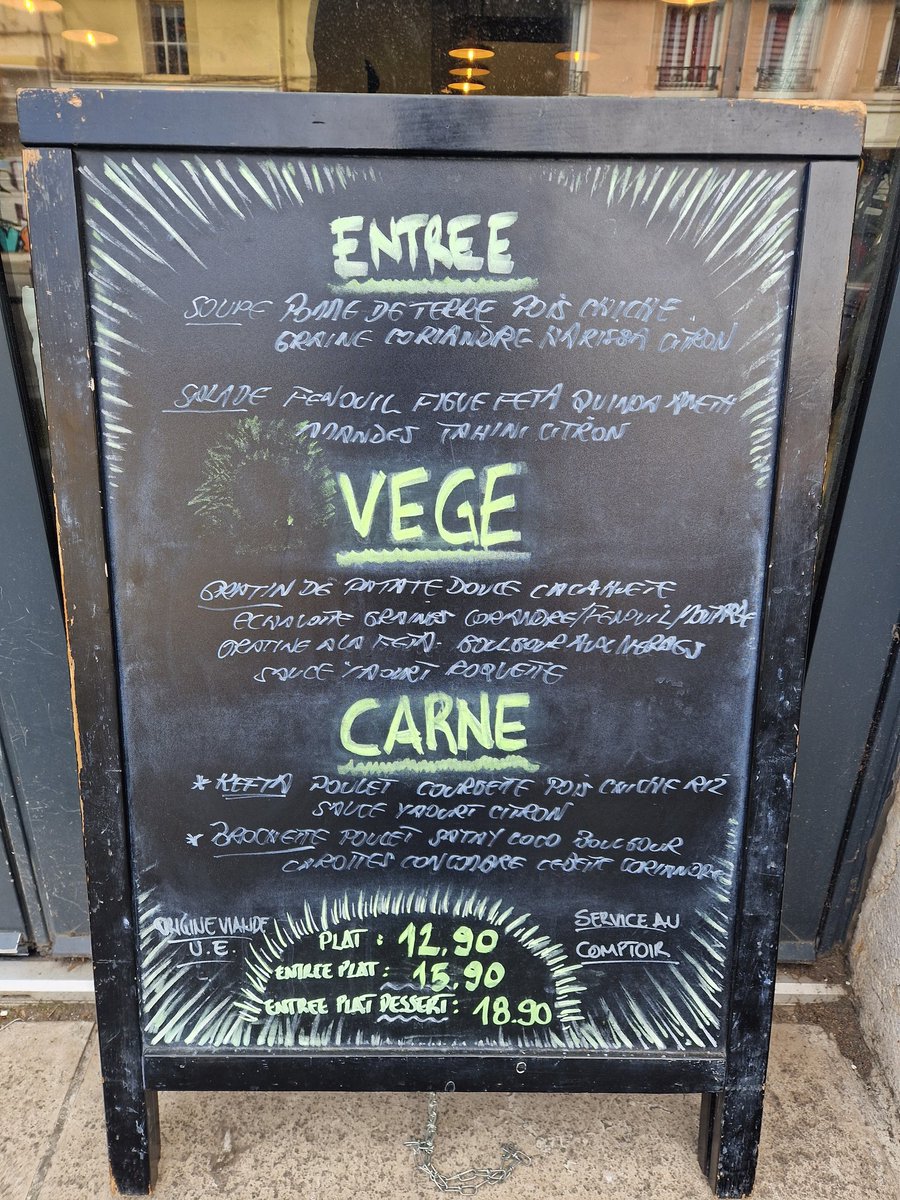 ENTREE
SOUPE POMME DE TERRE POIS CHICHE
GRAINE CORIANDRE HARISSA CITRON
SALADE FENOUIL FIGUE FETA QUINOA ANETH
AMANDES TAHINI CITRON
VEGE
GRATIN DE PATATE DOUCE CACAHUETE
ECHALOTE GRAINES CORIANDRE/FENOUIL/MOUTARDE
GRATINE A LA FETA BOULGOUR AUX HERBES
SAUCE YAOURT ROQUETTE
CARNE
* KEFTA POULET COURGETTE POIS CHICHE RIZ
SAUCE YAOURT CITRON
* BROCHETTE POULET SATAY COCO BOULGOUR
CAROTTES CONCOMBRE CEBETTE CORIANDRE
ORIGINE VIANDE
U.E.
PLAT : 12.90
ENTREE PLAT : 15.90
ENTREE PLAT DESSERT : 18.90
SERVICE AU
COMPTOIR